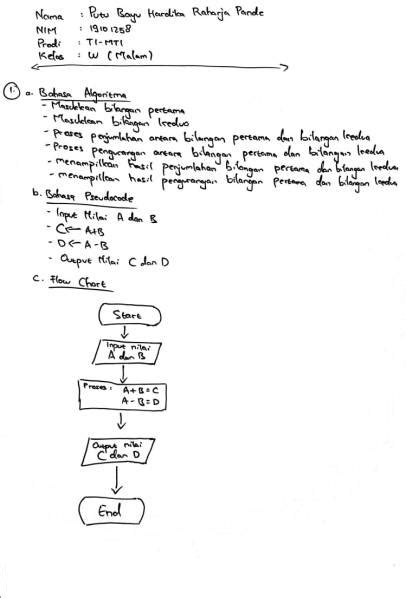 Nama : Putu Bayu Hardika Raharja Pande
NIM : 19101258
Prodi : TI-MTI
Kelas : W (Malam)
1. a. Bahasa Algoritma
- Masukkan bilangan pertama
- Masukkan bilangan kedua
- Proses penjumlahan antara bilangan pertama dan bilangan kedua
- Proses pengurangan antara bilangan pertama dan bilangan kedua
- menampilkan hasil penjumlahan bilangan pertama dan bilangan kedua
- menampilkan hasil pengurangan bilangan pertama dan bilangan kedua
b. Bahasa Pseudocode
- Input Nilai A dan B
- C ← A+B
- D ← A-B
- Output Nilai C dan D
C. Flow Chart
Start
Input nilai
A dan B
Proses : A+B=C
A-B=D
Output nilai
C dan D
End